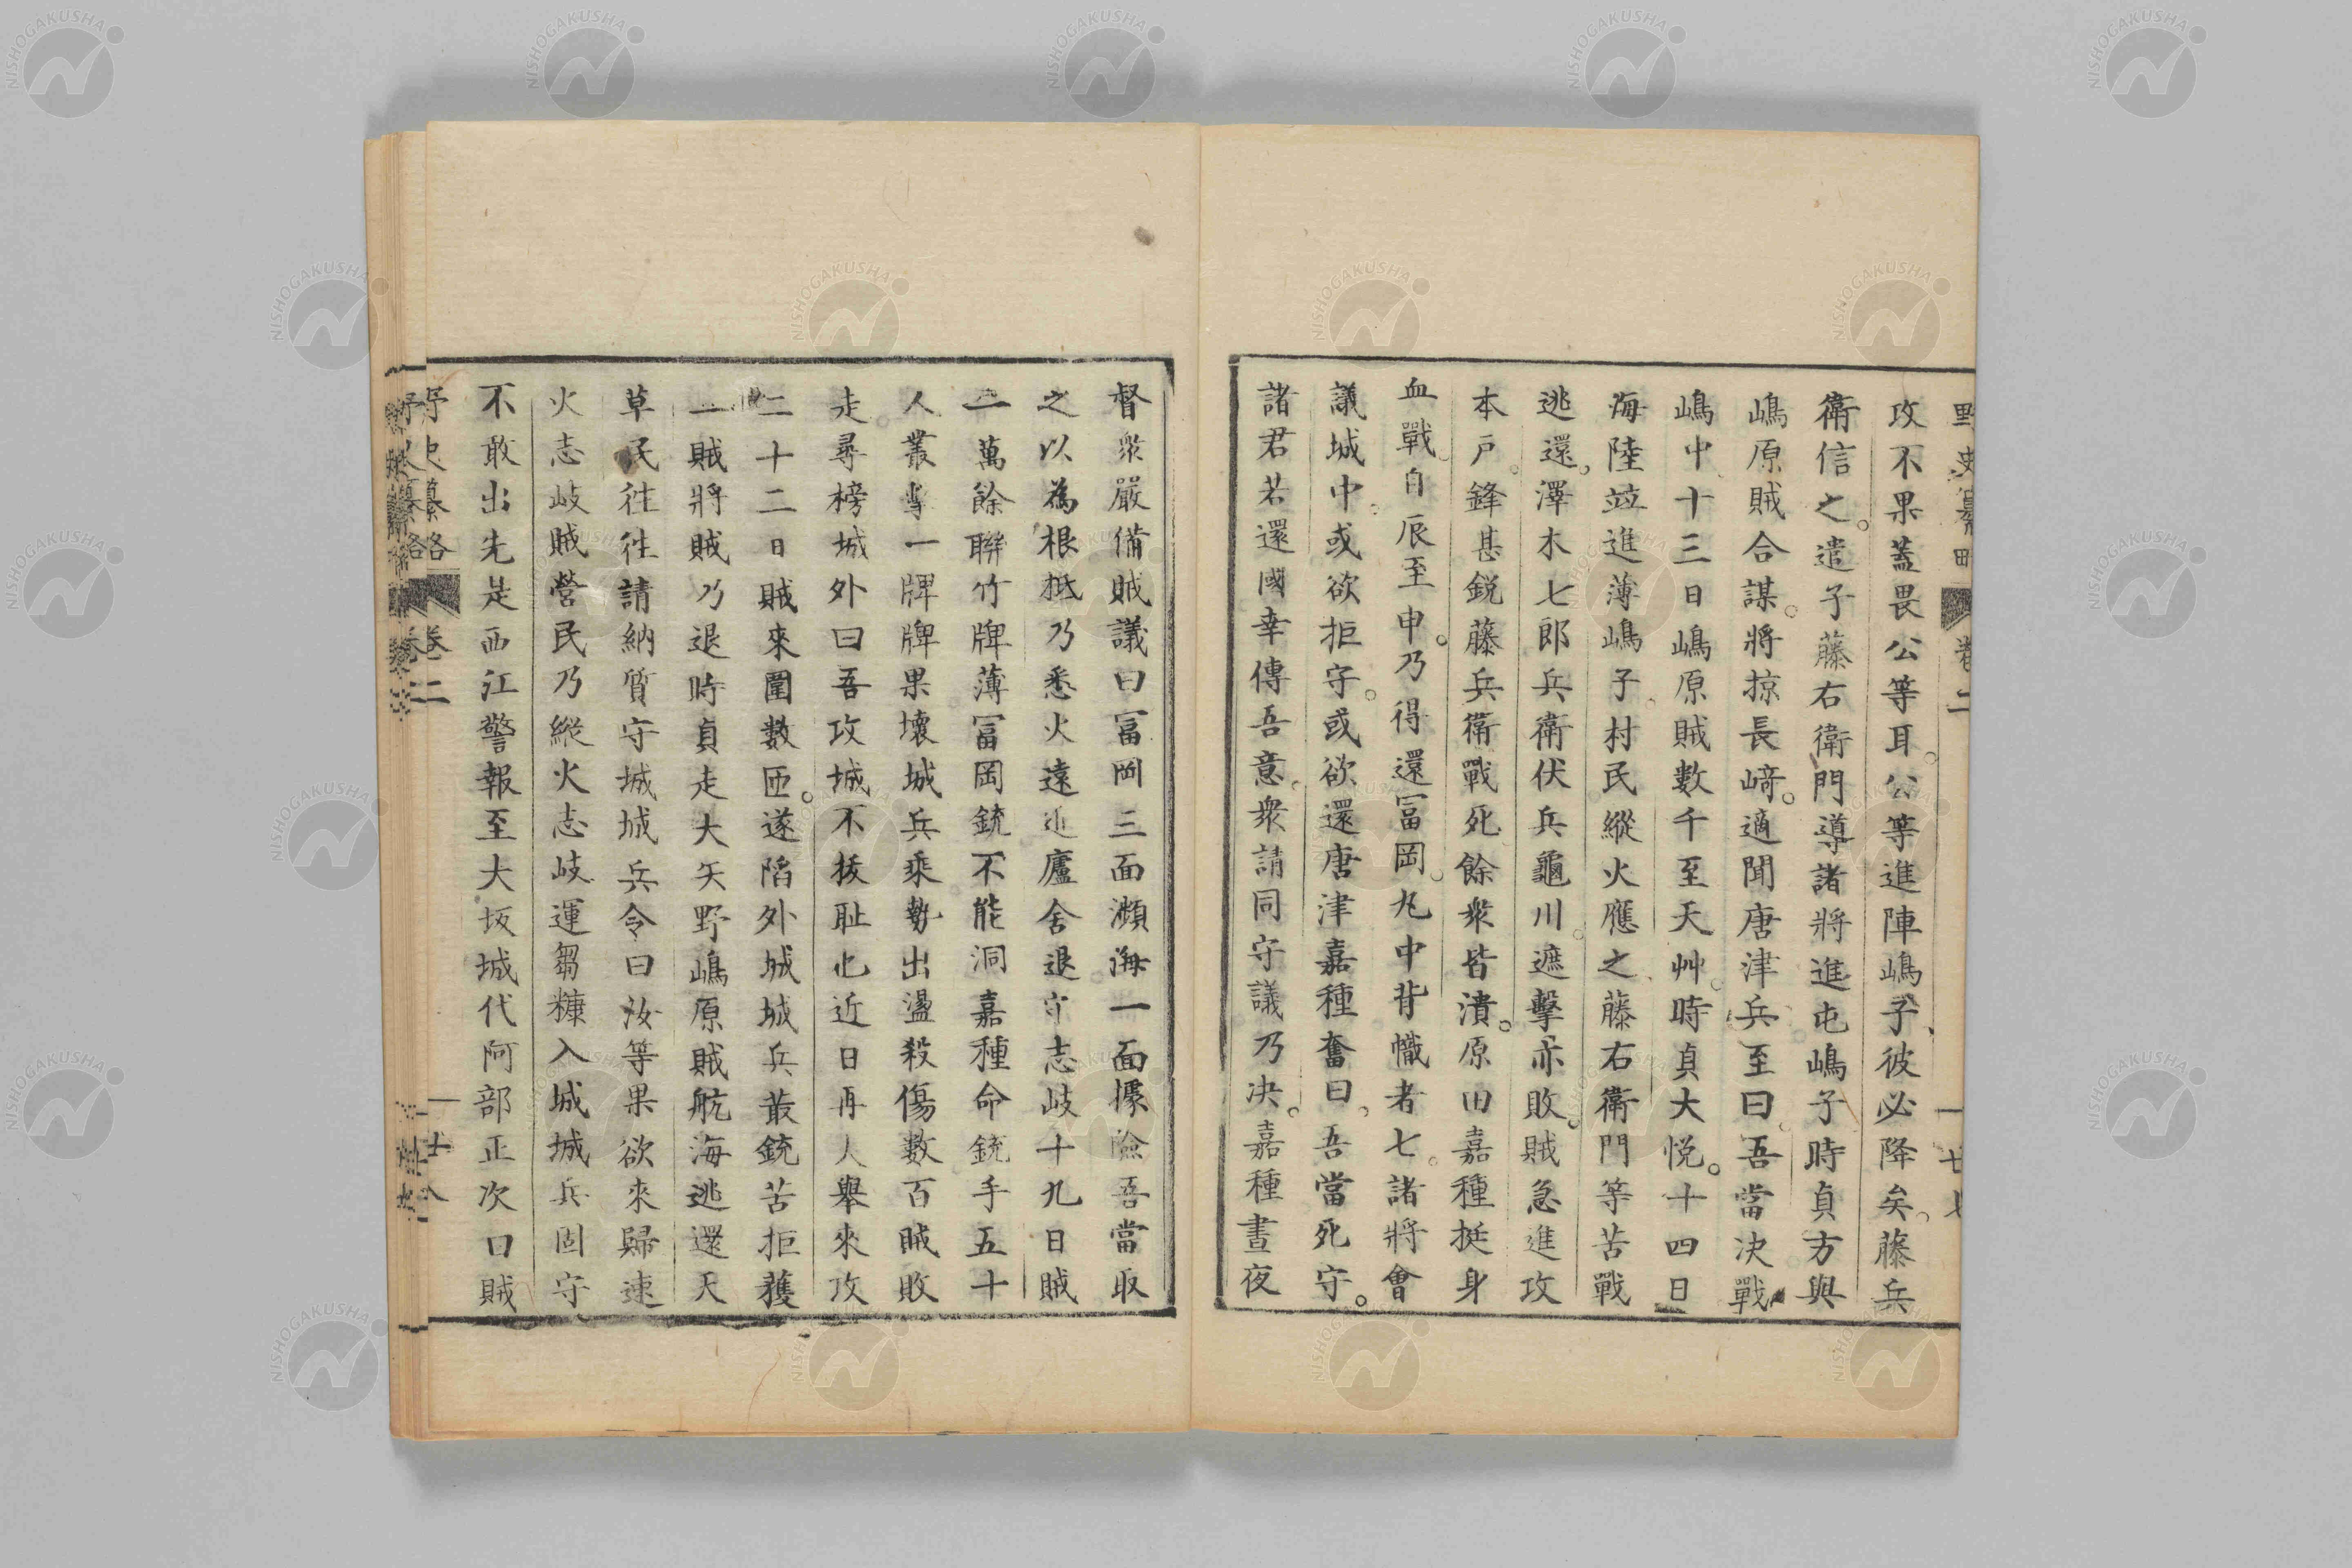 野史纂略 卷二 十七
攻不果蓋畏公等耳公等進陣嶋子彼必降矣藤兵
衛信之遣子藤右衛門導諸將進屯嶋子時貞方與
嶋原賊合謀將掠長﨑適聞唐津兵至曰吾當決戰
嶋中十三日嶋原賊數千至天艸時貞大悅十四日
海陸竝進薄嶋子村民縱火應之藤右衛門等苦戰
逃還澤木七郎兵衛伏兵龜川遮擊亦敗賊急進攻
本戶鋒甚銳藤兵衛戰死餘衆皆潰原田嘉種挺身
血戰自辰至申乃得還冨岡丸中背幟者七諸將會
議城中或欲拒守或欲還唐津嘉種奮曰吾當死守
諸君若還國幸傳吾意衆請同守議乃決嘉種晝夜
督衆嚴備賊議曰冨岡三面瀕海一面據險吾當取
之以為根柢乃悉火遠近廬舍退守志岐十九日賊
二萬餘聯竹牌薄冨岡銃不能洞嘉種命銃手五十
人叢擊一牌牌果壞城兵乘勢出盪殺傷數百賊敗
走尋榜城外曰吾攻城不拔耻也近日再人舉來攻
二十二日賊來圍數匝遂陷外城城兵叢銃苦拒獲
一賊將賊乃退時貞走大矢野嶋原賊航海逃還天
草民往往請納質守城城兵令曰汝等果欲來歸速
火志岐賊營民乃縱火志岐運芻糠入城城兵固守
不敢出先是西江警報至大坂城代阿部正次曰賊
野史纂略 卷二 十八
NISHOGAKUSHA